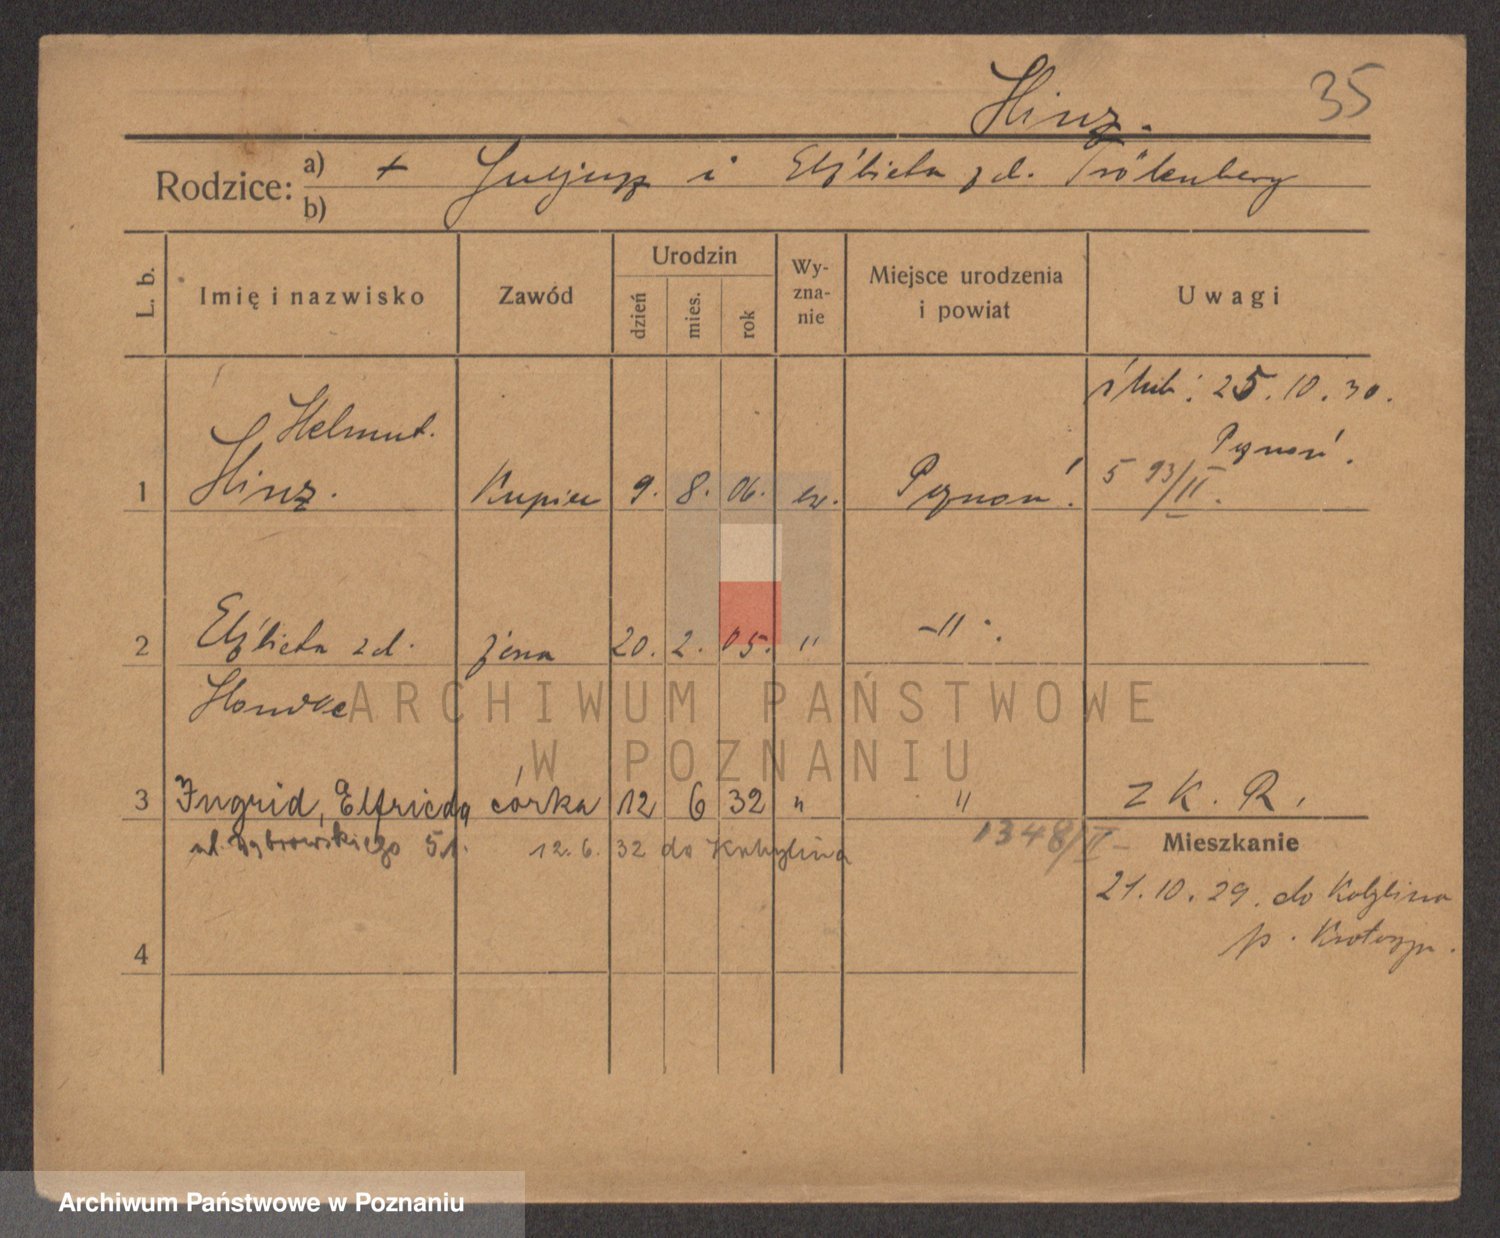 Hinz. 35
Rodzice: a) + Juljusz i Elżbieta zd. Trölenberg
b)
L. b. Imię i nazwisko Zawód Urodzin dzień mies. rok Wy-zna-nie Miejsce urodzenia i powiat Uwagi
ślub: 25. 10. 30.
Helmut. Poznań.
1 Hinz. Kupiec 9. 8. 06. ew. Poznań. 5 93/II.
2 Elżbieta zd. żona 20. 2. 05. " -"-.
ARCHIWUM PAŃSTWOWE
W POZNANIU
3 Ingrid, Elfrieda córka 12 6 32 " " Z K. R.
ul. Dąbrowskiego 51. 12. 6. 32 do Kobylina 1348/II- Mieszkanie
21. 10. 29. do Kobylina
p. Krotoszyn.
4
Archiwum Państwowe w Poznaniu